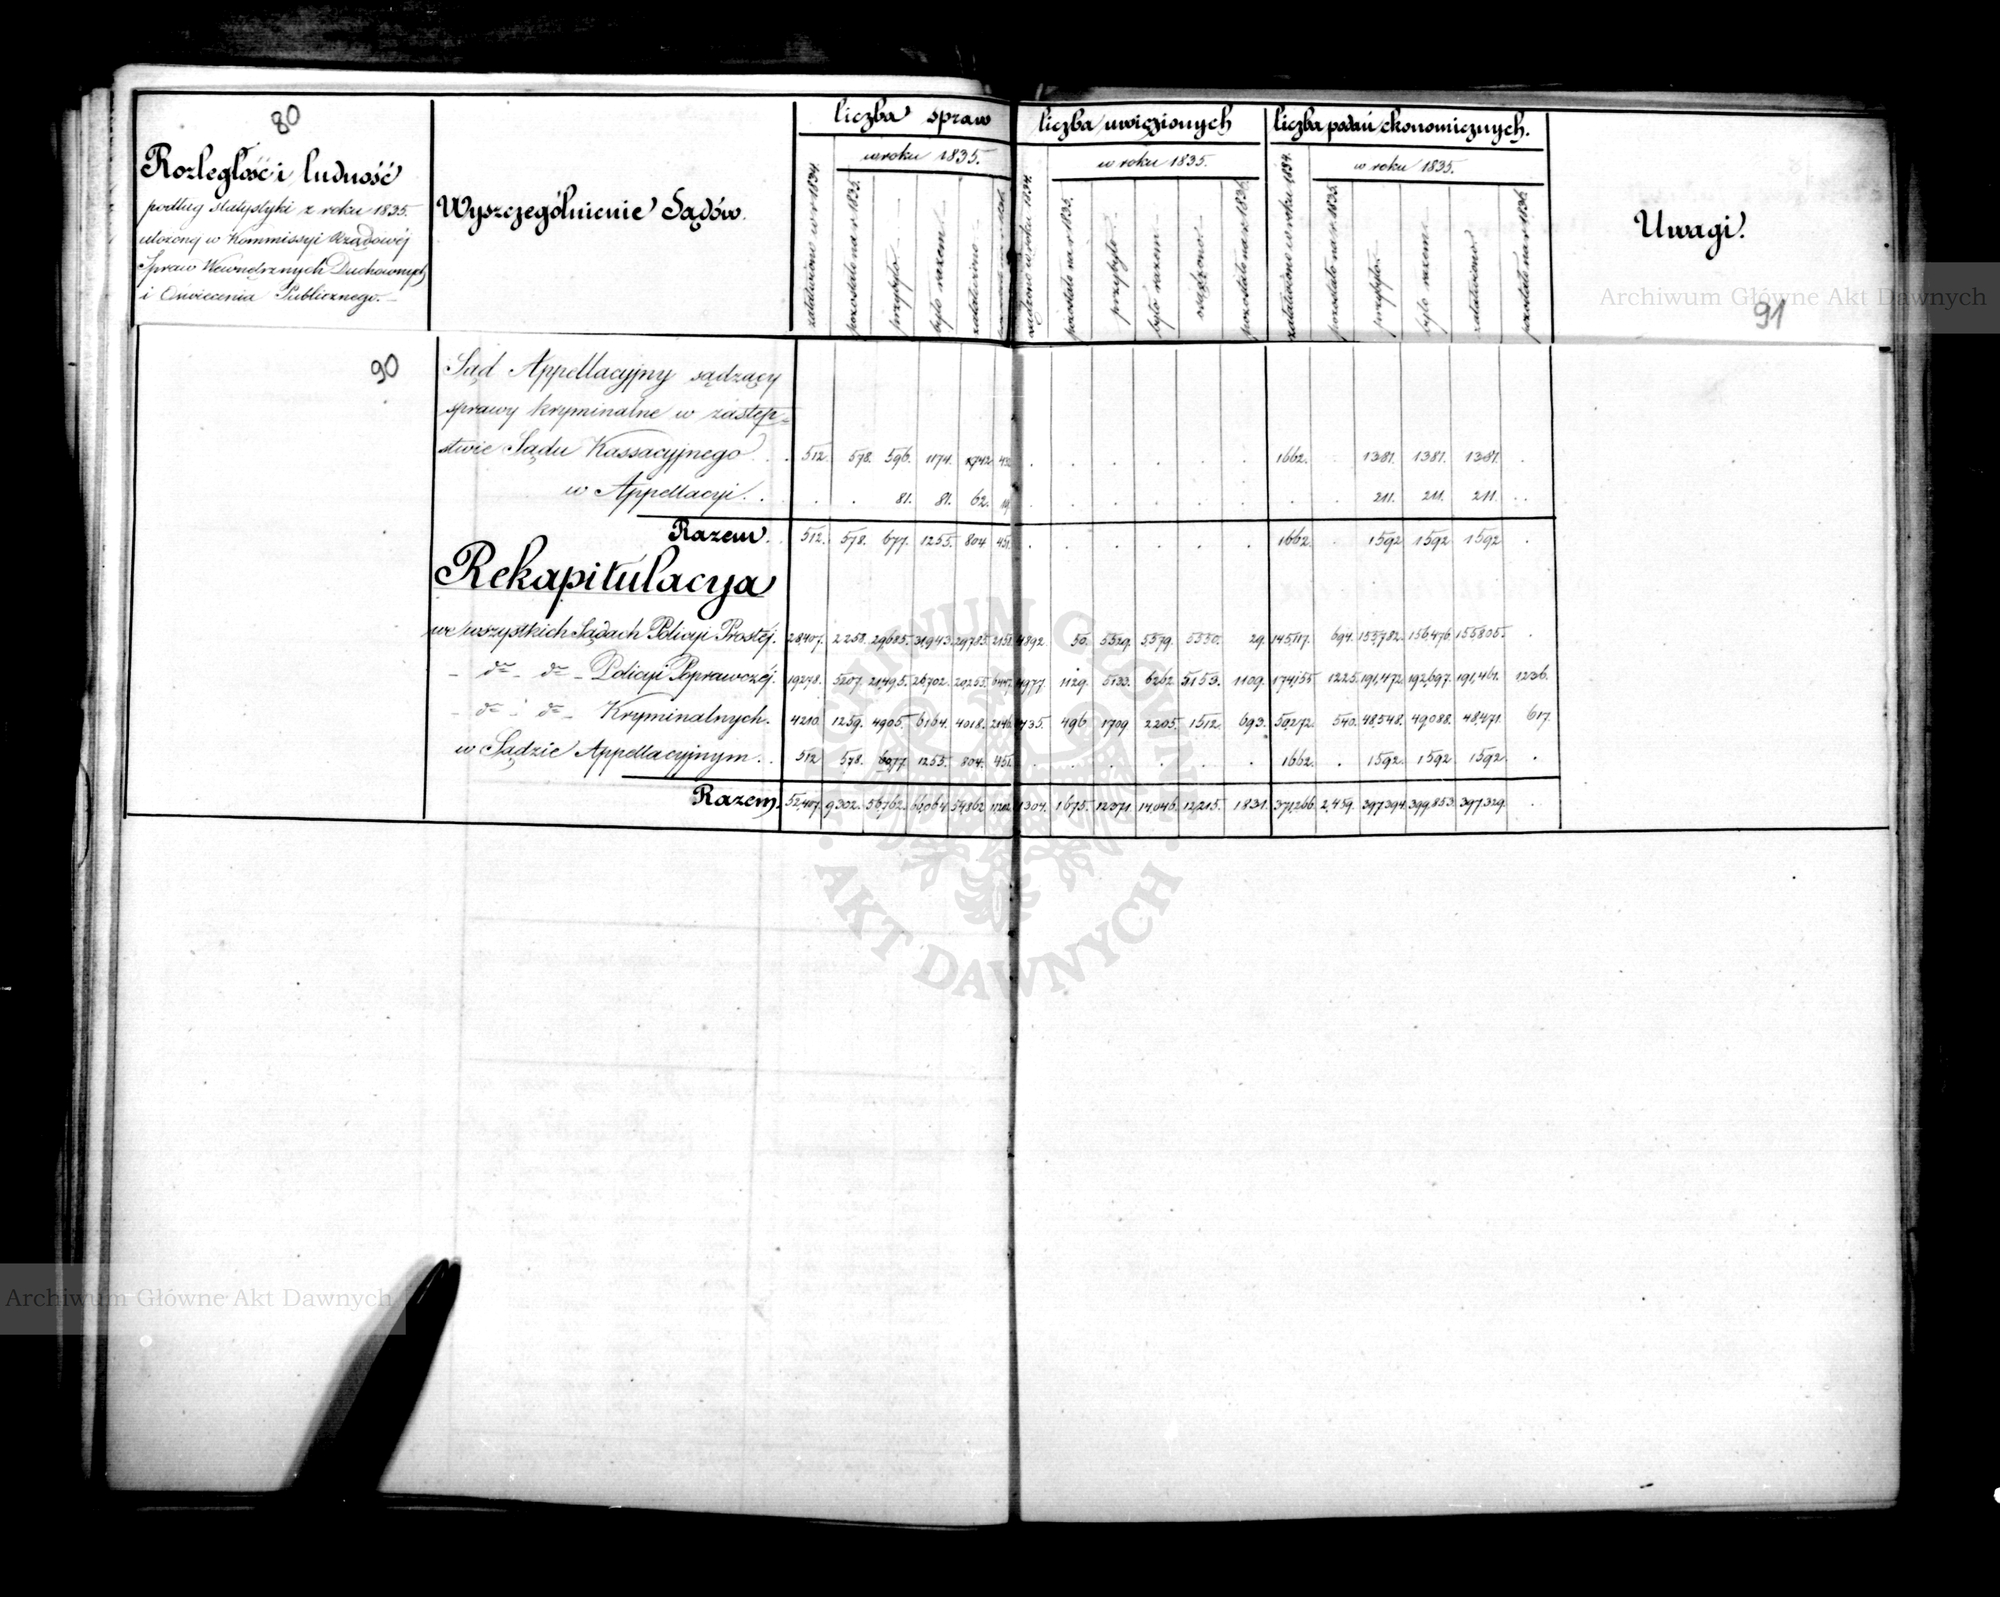 80
Rozległość i ludność
podług statystyki z roku 1835.
ułożonej w Kommissyi Rządowéj
Spraw Wewnętrznych Duchownych
i Oświecenia Publicznego.
Wyszczególnienie Sądów.
liczba spraw
w roku 1835.
załatwiono w r 1834.
pozostało na r 1835.
przybyło
było razem
załatwiono
liczba uwięzionych
w roku 1835.
pozostało na r 1835.
przybyło
było razem
osądzono
pozostało na r 1836.
liczba podań ekonomicznych.
w roku 1835.
załatwiono w roku 1834.
pozostało na r 1835.
przybyło
było razem
załatwiono
pozostało na r 1836.
Uwagi.
91
90
Sąd Appellacyjny sądzący
sprawy kryminalne w zastęp-
stwie Sądu Kassacyjnego . . 512. 578. 596. 1174. 742. 432 . . . . . . 1662. . 1381. 1381. 1381. .
w Appellacyi. . . . 81. 81. 62. 19. . . . . . . . . 211. 211. 211. . .
Razem. 512. 578. 677. 1255. 804 451. . . . . . . 1662. . 1592 1592 1592 .
Rekapitulacya
we wszystkich Sądach Policyi Prostéj. 28407. 2258. 29685. 31,943. 29785. 2158. 4892. 50. 5329. 5379. 5350. 29. 145117. 694. 155,782. 156,476. 155805. .
- do - do - Policyi Poprawczéj. 19278. 5207. 21,495. 26702. 20,255. 6447. 4977. 1129. 5133. 6262. 5153. 1109. 174,155 1225. 191,472. 192,697. 191,461. 1236.
- do - do - Kryminalnych. 4210. 1259. 4905. 6164. 4018. 2146. 1435. 496. 1709. 2205. 1512. 693. 50,272. 540. 48,548. 49088. 48,471. 617.
w Sądzie Appellacyjnym. . 512 578. 677. 1255. 804. 451. . . . . . . 1662. . 1592. 1592. 1592. .
Razem. 52,407. 9302. 56762. 66,064. 54,862. 11202. 11304. 1675. 12371. 14,046. 12,215. 1831. 371,266. 2,459. 397394. 399,853. 397329. .
Archiwum Główne Akt Dawnych
Archiwum Główne Akt Dawnych
ARCHIWUM GŁÓWNE
AKT DAWNYCH